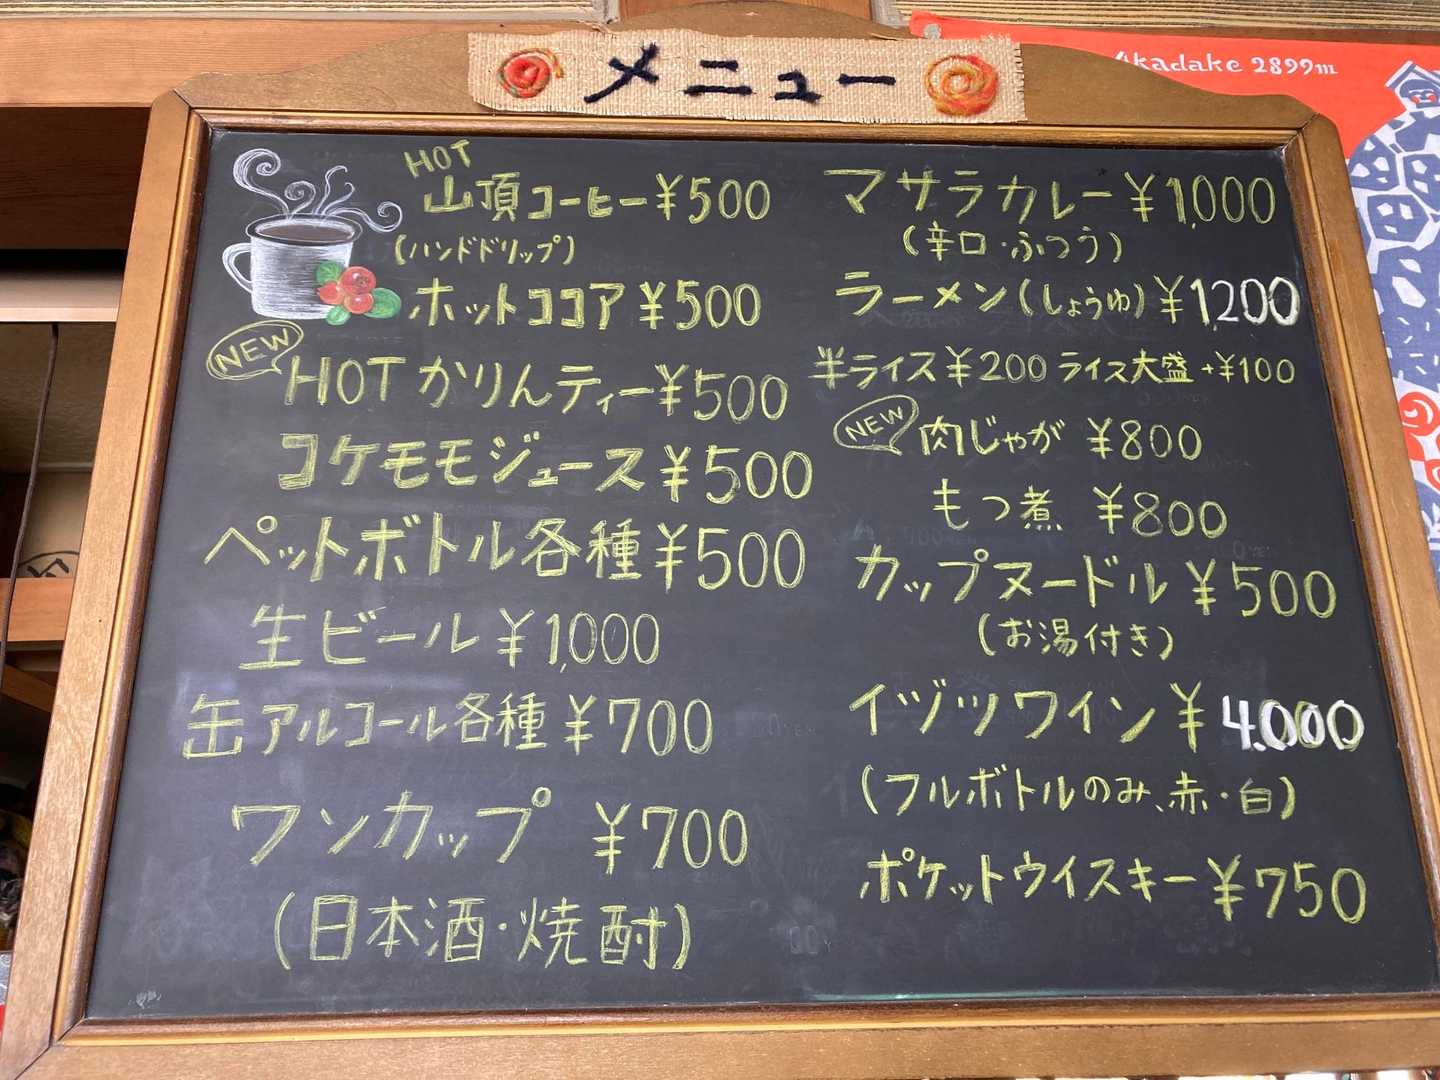 メニュー
Akadake 2899m
HOT
山頂コーヒー¥500
(ハンドドリップ)
ホットココア¥500
NEW
HOTかりんティー¥500
コケモモジュース¥500
ペットボトル各種¥500
生ビール¥1,000
缶アルコール各種¥700
ワンカップ ¥700
(日本酒・焼酎)
マサラカレー¥1,000
(辛口・ふつう)
ラーメン(しょうゆ)¥1,200
半ライス¥200 ライス大盛+¥100
NEW
肉じゃが ¥800
もつ煮 ¥800
カップヌードル¥500
(お湯付き)
イヅツワイン¥4.000
(フルボトルのみ、赤・白)
ポケットウイスキー¥750